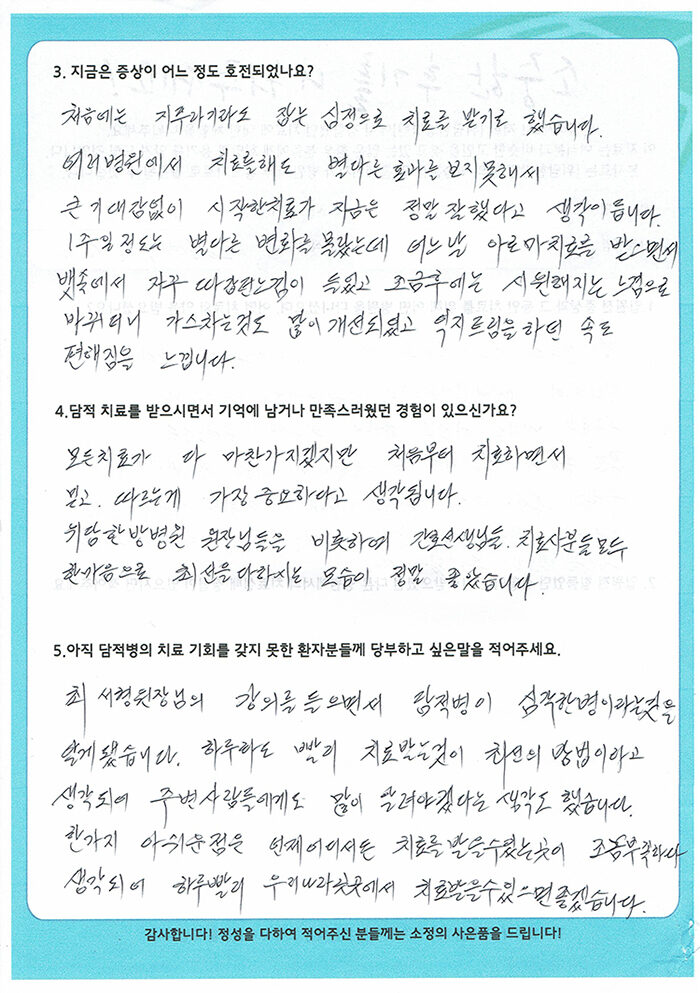 3. 지금은 증상이 어느 정도 호전되었나요?
처음에는 지푸라기라도 잡는 심정으로 치료를 받기로 했습니다.
여러병원에서 치료를해도 별다른 효과를 보지못해서
큰 기대감없이 시작한치료가 지금은 정말 잘했다고 생각이 듭니다.
1주일정도는 별다른 변화를 몰랐는데 어느날 아로마치료를 받으면서
뱃속에서 자꾸 따갑편느낌이 득었고 조금후에는 시원해지는 느낌으로
바뀌더니 가스차는것도 많이 개선되었고 억지트림을 하던 속도
편해짐을 느낍니다.
4.담적 치료를 받으시면서 기억에 남거나 만족스러웠던 경험이 있으신가요?
모든치료가 다 마찬가지겠지만 처음부터 치료하면서
믿고. 따르는게 가장 중요하다고 생각됩니다.
위담한방병원 원장님들을 비롯하여 간호선생님들. 치료사분들모두
한마음으로 최선을다하시는 모습이 정말 좋았습니다.
5.아직 담적병의 치료 기회를 갖지 못한 환자분들께 당부하고 싶은말을 적어주세요.
최 서형원장님의 강의를 들으면서 담적병이 심각한병이라는것을
알게됐습니다. 하루라도 빨리 치료받는것이 최선의 방법이라고
생각되어 주변사람들에게도 많이 알려야겠다는 생각도 했습니다.
한가지 아쉬운점은 언제어디서든 치료를받을수있는곳이 조금부족하다
생각되어 하루빨리 우리나라곳곳에서 치료받을수있으면좋겠습니다.
감사합니다! 정성을 다하여 적어주신 분들께는 소정의 사은품을 드립니다!